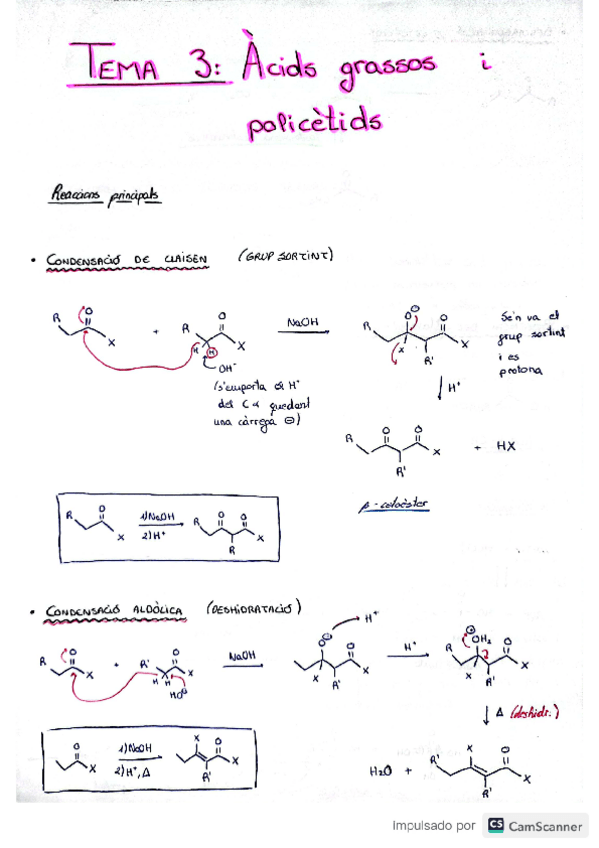 TEMA 3: Àcids grassos i
policètids
Reaccions principals
• CONDENSACIÓ DE CLAISEN (GRUP SORTINT)
R O X + R O X H H OH⁻ NaOH R O⊖ X R' O X
Se'n va el
grup sortint
i es
protona
(s'emporta el H⁺
del Cα quedant
una càrrega ⊖)
H⁺
R O O X R' + HX
β-cetoèster
R O X 1) NaOH 2) H⁺ R O O X R
• CONDENSACIÓ ALDÒLICA (DESHIDRATACIÓ)
R O X + R' O X H H HO⊖ NaOH O⊖ X R' O X H⁺ H⁺ R OH₂ X R' O X
Δ (deshidr.)
O X 1) NaOH 2) H⁺, Δ X O X R'
H₂O + R' X O X R'
Impulsado por CS CamScanner